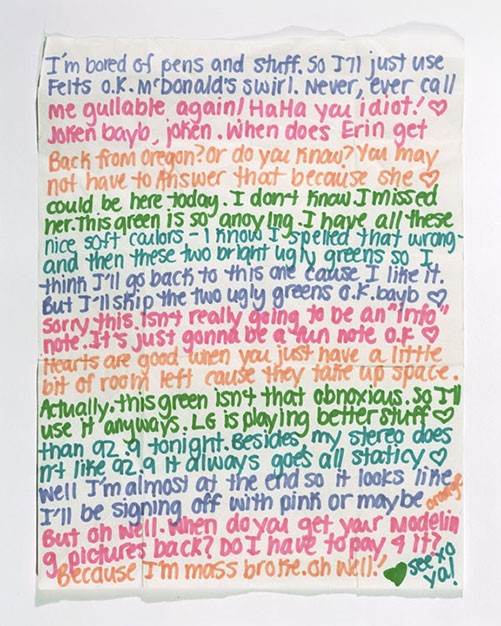 I'm bored of pens and stuff. So I'll just use
Felts o.k. McDonald's swirl. Never, ever call
me gullable again! HaHa you idiot! ♡
Joken bayb, joken. When does Erin get
Back from Oregon? Or do you know? You may
not have to Answer that because she ♡
could be here today. I don't know I missed
her. This green is so anoying. I have all these
nice soft caulors - I know I spelled that wrong-
and then these two bright ugly greens so I
think I'll go back to this one cause I like it.
But I'll skip the two ugly greens o.k. bayb ♡
sorry this. Isn't really going to be an "info"
note. It's just gonna be a fun note o.k ♡
Hearts are good when you just have a little
bit of room left cause they take up space.
Actually, this green isn't that obnoxious. so I'll
use it anyways. LG is playing better stuff ♡
than 92.9 tonight. Besides, my stereo does
n't like 92.9 it always goes all staticy ♡
Well I'm almost at the end so it looks like
I'll be signing off with pink or maybe orange
But oh well. When do you get your Modelin
g pictures back? Do I have to pay 4 it?
Because I'm mass broke. oh well!
♥ see xo
ya!